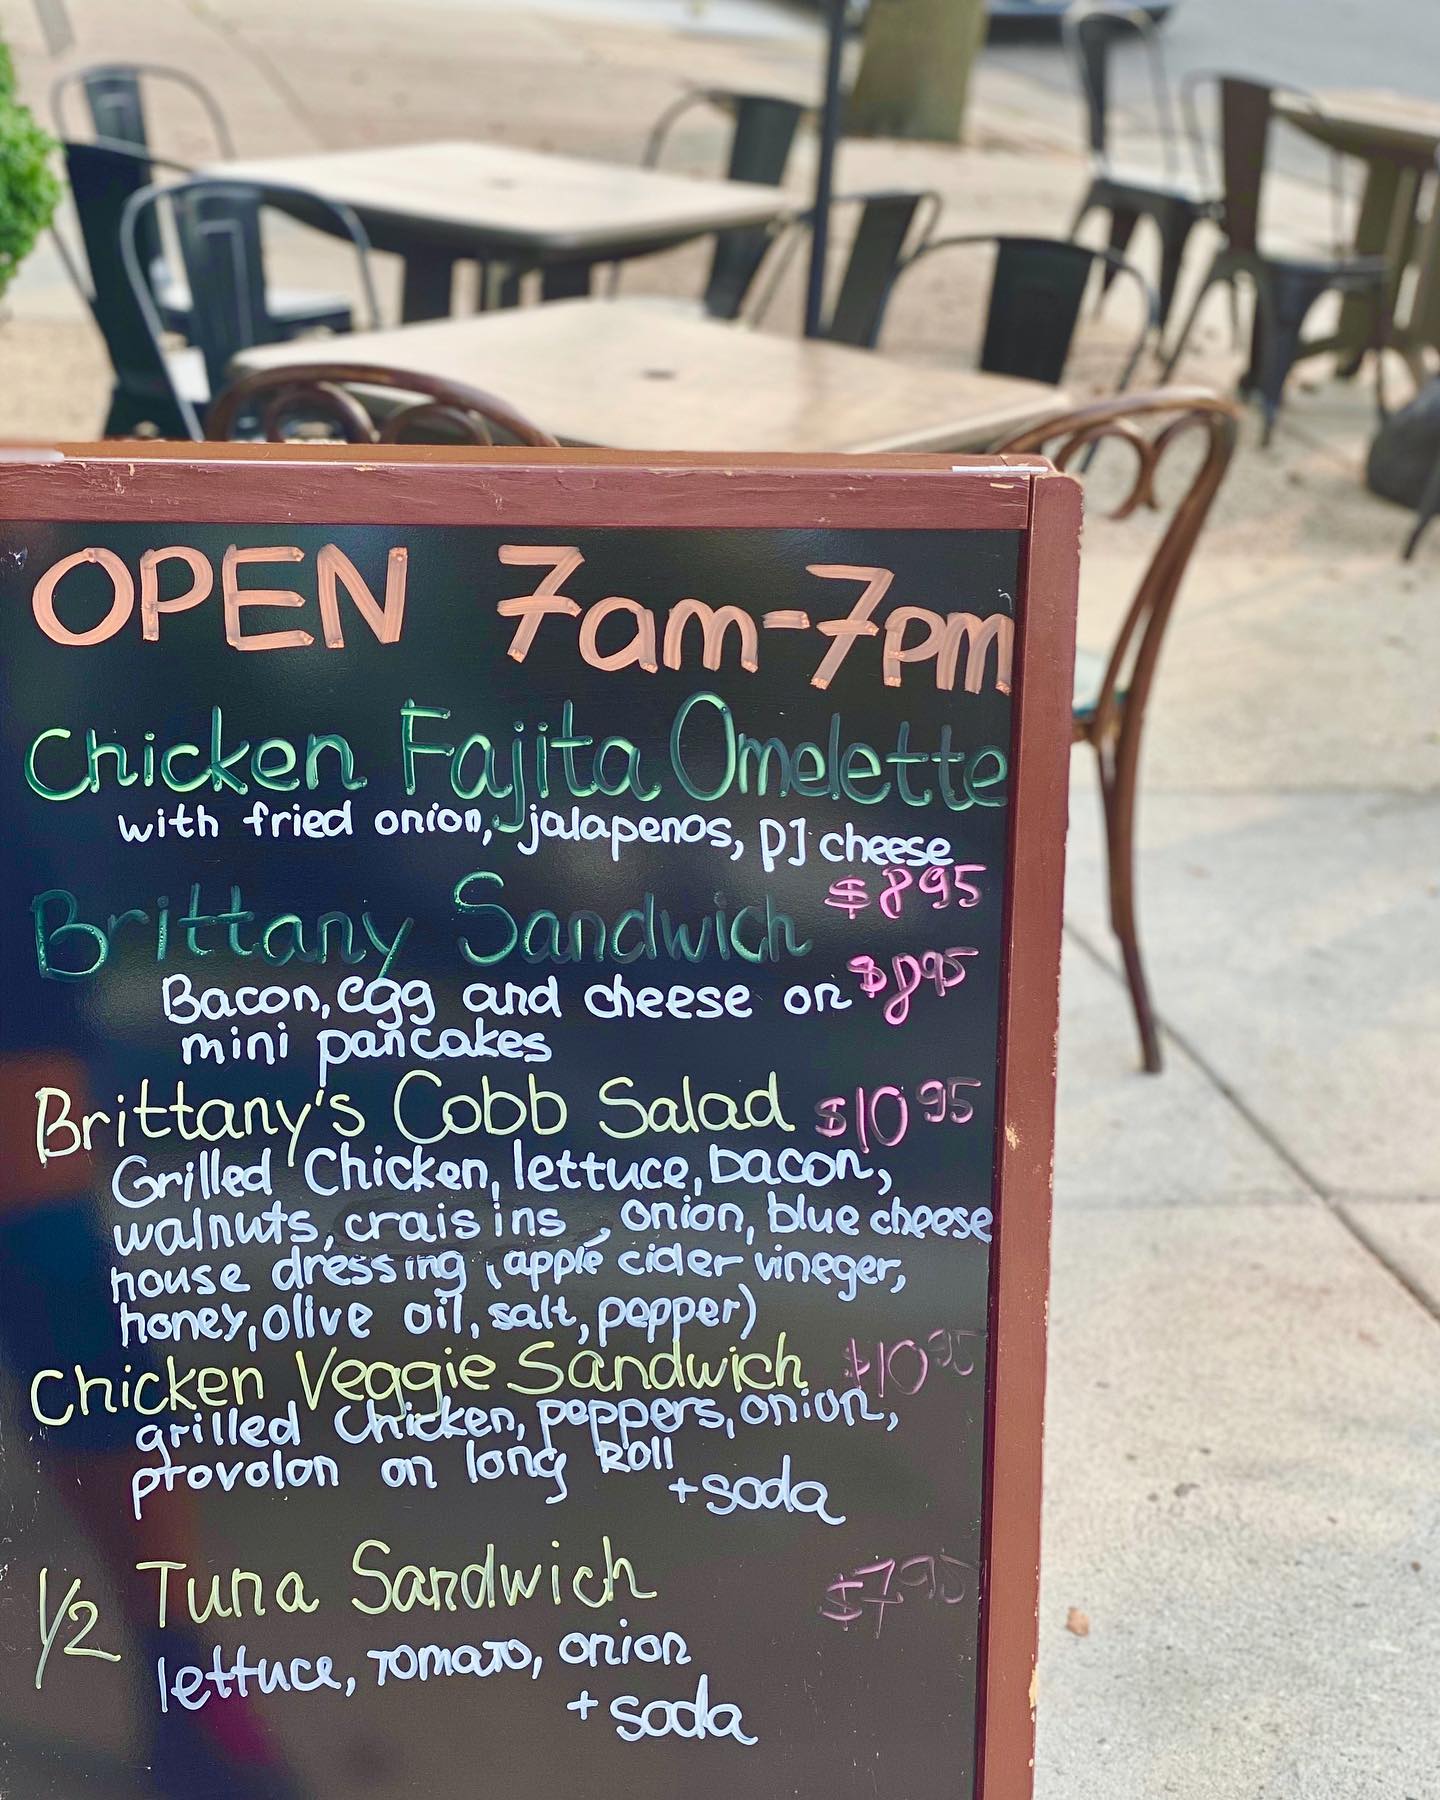 OPEN 7am-7pm
Chicken Fajita Omelette
with fried onion, jalapenos, pJ cheese
$895
Brittany Sandwich
Bacon, egg and cheese on $895
mini pancakes
Brittany's Cobb Salad $1095
Grilled Chicken, lettuce, bacon,
walnuts, craisins, onion, blue cheese
house dressing (apple cider vineger,
honey, olive oil, salt, pepper)
Chicken Veggie Sandwich $1095
grilled Chicken, peppers, onion,
provolon on long Roll
+soda
1/2 Tuna Sandwich $795
lettuce, tomato, onion
+ soda